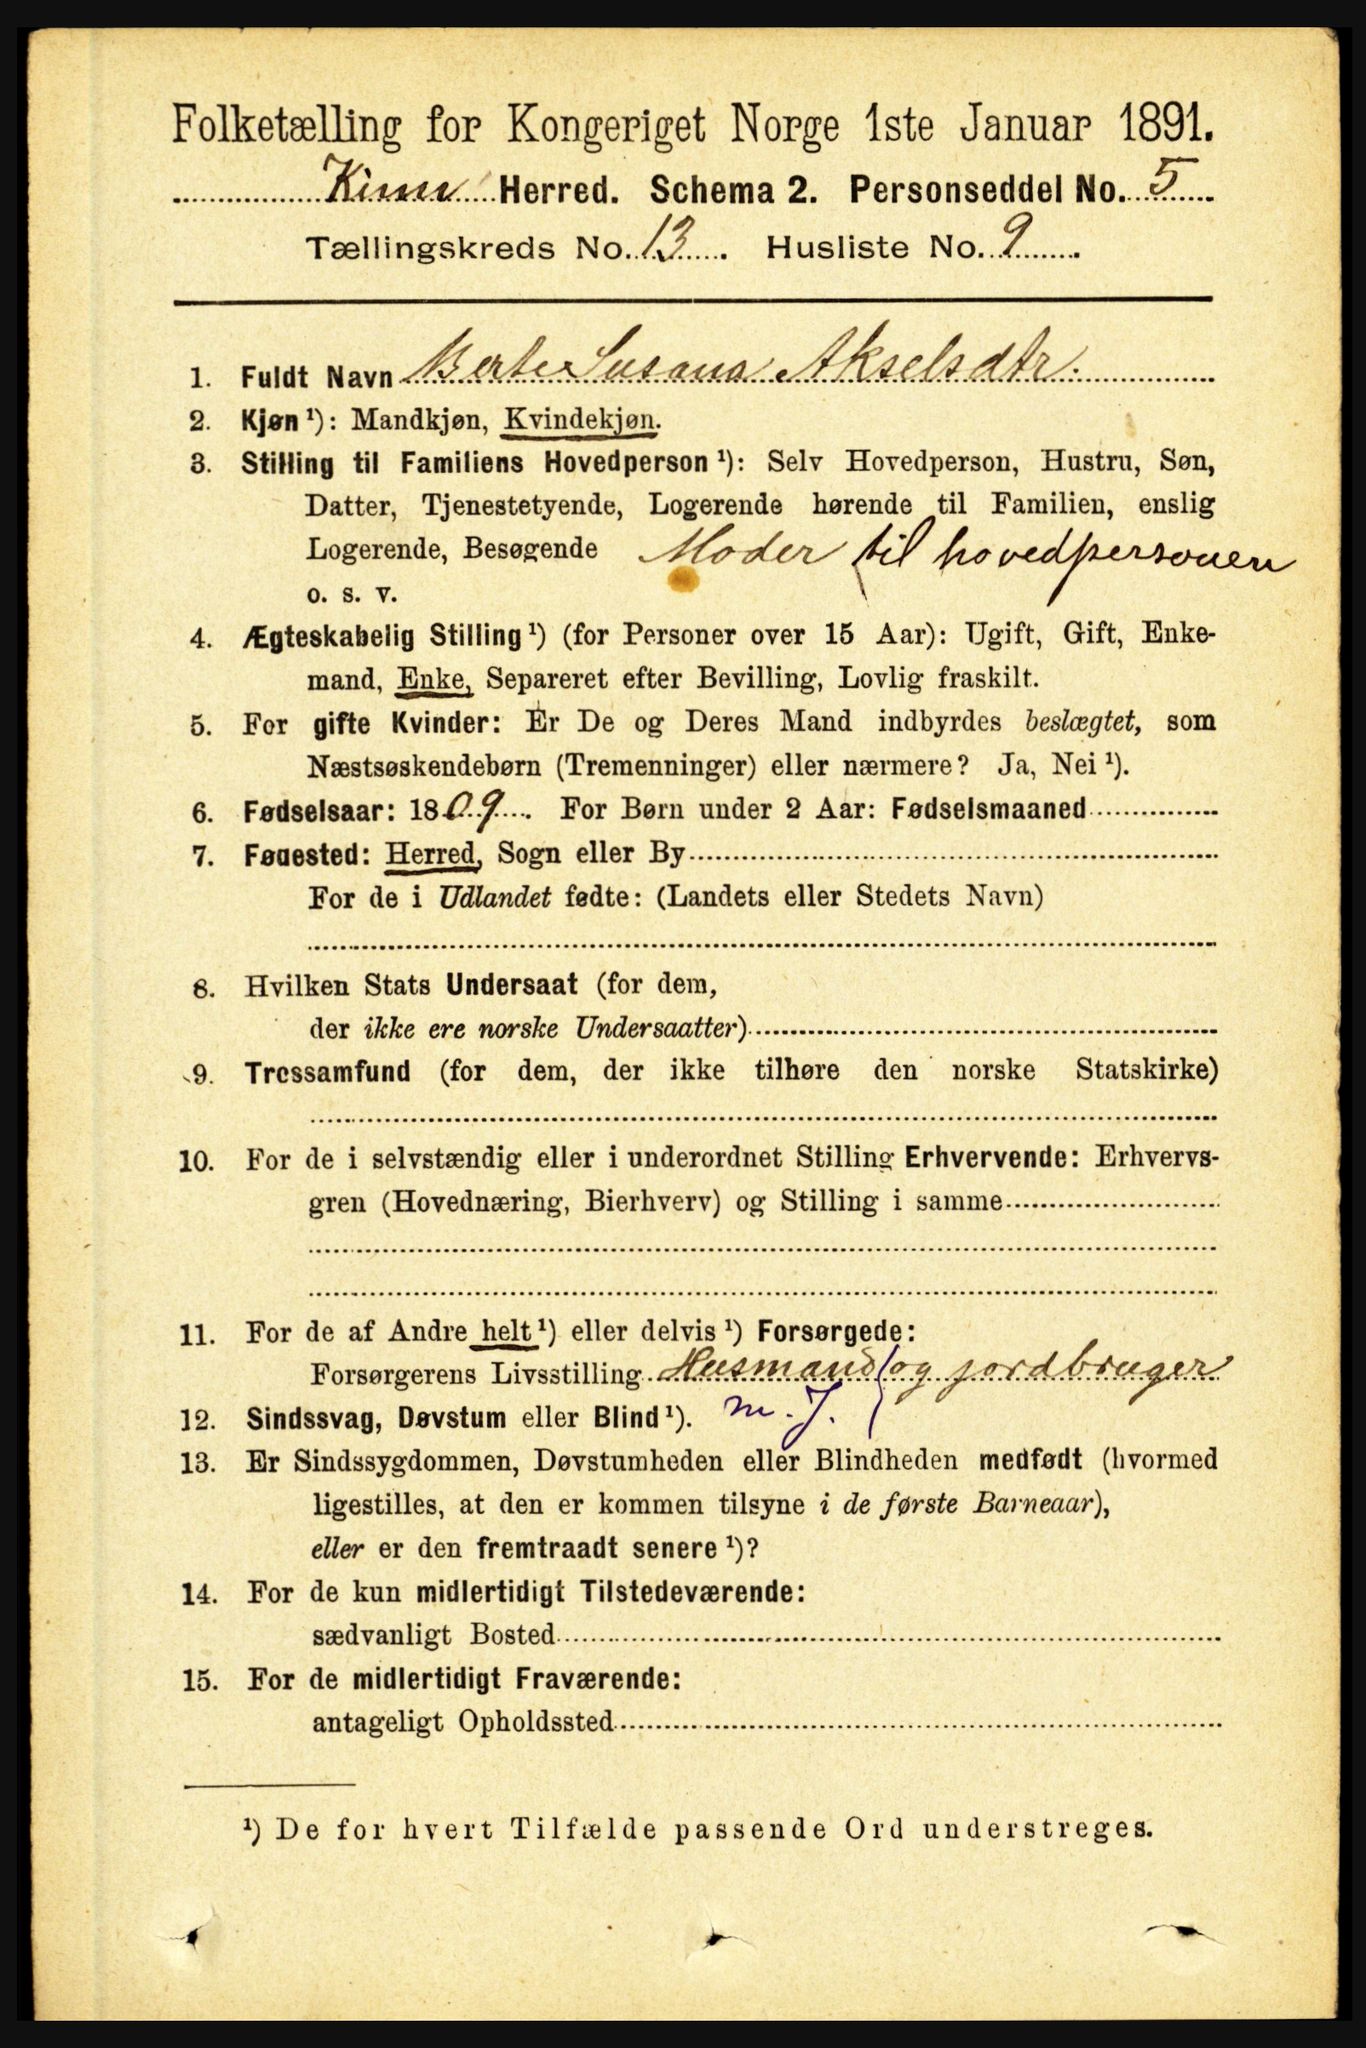 Folketælling for Kongeriget Norge 1ste Januar 1891.
Kinn Herred. Schema 2. Personseddel No. 5
Tællingskreds No. 13. Husliste No. 9
1. Fuldt Navn Berte Susana Akselsdtr.
2. Kjøn ¹): Mandkjøn, Kvindekjøn.
3. Stilling til Familiens Hovedperson ¹): Selv Hovedperson, Hustru, Søn,
Datter, Tjenestetyende, Logerende hørende til Familien, enslig
Logerende, Besøgende Moder til hovedpersonen
o. s. v.
4. Ægteskabelig Stilling ¹) (for Personer over 15 Aar): Ugift, Gift, Enke-
mand, Enke, Separeret efter Bevilling, Lovlig fraskilt.
5. For gifte Kvinder: Er De og Deres Mand indbyrdes beslægtet, som
Næstsøskendebørn (Tremenninger) eller nærmere? Ja, Nei ¹).
6. Fødselsaar: 1809. For Børn under 2 Aar: Fødselsmaaned
7. Fødested: Herred, Sogn eller By
For de i Udlandet fødte: (Landets eller Stedets Navn)
8. Hvilken Stats Undersaat (for dem,
der ikke ere norske Undersaatter)
9. Trossamfund (for dem, der ikke tilhøre den norske Statskirke)
10. For de i selvstændig eller i underordnet Stilling Erhvervende: Erhvervs-
gren (Hovednæring, Bierhverv) og Stilling i samme
11. For de af Andre helt ¹) eller delvis ¹) Forsørgede:
Forsørgerens Livsstilling Husmand og jordbruger
12. Sindssvag, Døvstum eller Blind ¹). m. J.
13. Er Sindssygdommen, Døvstumheden eller Blindheden medfødt (hvormed
ligestilles, at den er kommen tilsyne i de første Barneaar),
eller er den fremtraadt senere ¹)?
14. For de kun midlertidigt Tilstedeværende:
sædvanligt Bosted
15. For de midlertidigt Fraværende:
antageligt Opholdssted
¹) De for hvert Tilfælde passende Ord understreges.